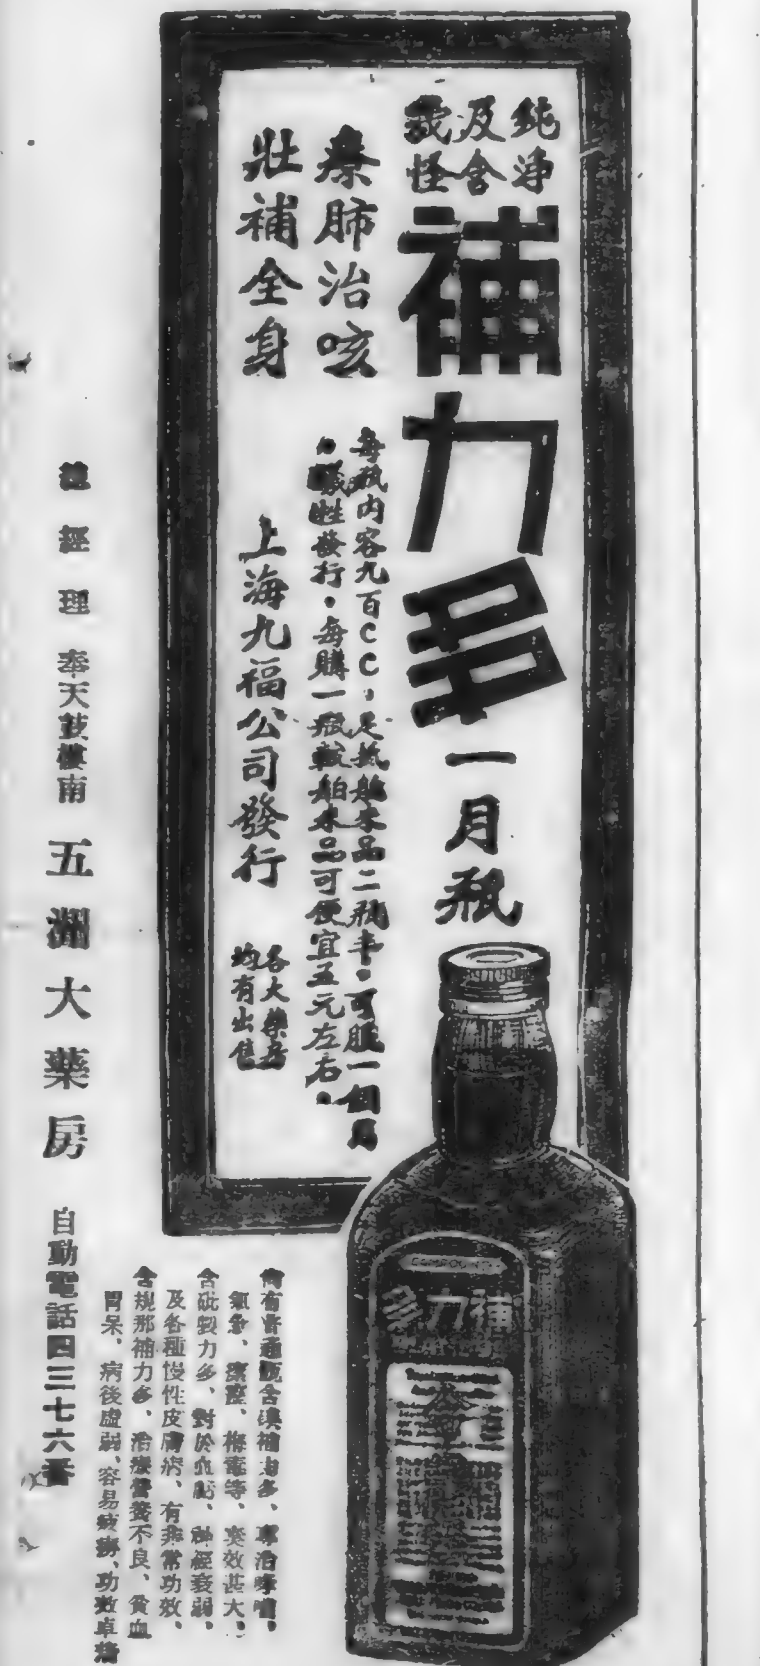 純淨
及含
怪
補力多
一月瓶
療肺治咳
壯補全身
每瓶内容九百CC，足抵舶來品二瓶半。可服一個月
犧牲發行，每購一瓶較舶來品可便宜五元左右。
上海九福公司發行
各大藥房
均有出售
補力多
尚有普通瓶含碘補力多、專治哮喘、
氣急、瘰癧、梅毒等、奏效甚大、
含砒製力多、對於血虧、神經衰弱、
及各種慢性皮膚病、有非常功效、
含規那補力多、治療營養不良、貧血
胃呆、病後虛弱、容易疲勞、功效卓著
總經理 奉天鼓樓南 五洲大藥房 自動電話四三七六番